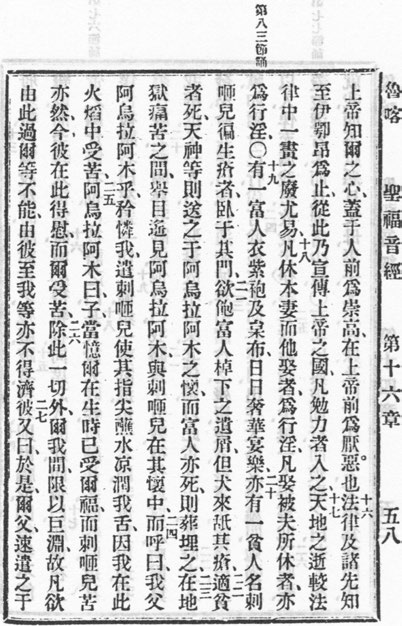 魯喀 聖福音經 第十六章 五八
第八三節誦
上帝知爾之心、蓋于人前爲崇高、在上帝前爲厭惡也。十六法律及諸先知
至伊鄂昂爲止、從此乃宣傳上帝之國、凡勉力者入之、十七天地之逝較法
律中一畫之廢尤易、十八凡休本妻而他娶者爲行淫、凡娶被夫所休者、亦
爲行淫〇十九有一富人衣紫袍及枲布、日日奢華宴樂、二十亦有一貧人名刺
咂兒、徧生瘡者、臥于其門、二一欲飽富人棹下之遺屑、但犬來舐其瘡、二二適貧
者死、天神等則送之于阿烏拉阿木之懷、而富人亦死、則葬埋之、二三在地
獄痛苦之間、舉目遙見阿烏拉阿木與刺咂兒在其懷中、二四而呼曰、我父
阿烏拉阿木乎、矜憐我、遣刺咂兒使其指尖蘸水、凉潤我舌、因我在此
火熖中受苦、二五阿烏拉阿木曰、子當憶爾在生時已受爾福、而刺咂兒苦
亦然、今彼在此得慰、而爾受苦、二六除此一切外、爾我間限以巨淵、故凡欲
由此過爾等不能、由彼至我等亦不得濟彼、二七又曰、於是爾父、速遣之于